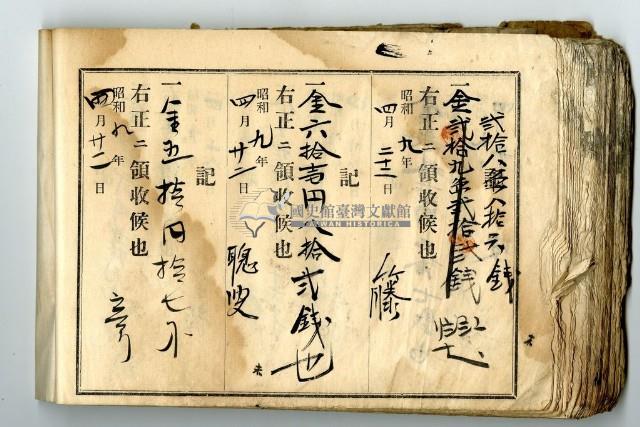 貳拾八圓八拾六錢
一金貳拾九円貳拾貳錢
右正ニ領收候也
昭和九年
四月二十二日
藤
記
一金六拾壱円八拾貳錢也
右正ニ領收候也
昭和九年
四月廿二日
聰叟
記
一金五拾円拾七
右正ニ領收候也
昭和九年
四月廿二日
國史館臺灣文獻館
TAIWAN HISTORICA